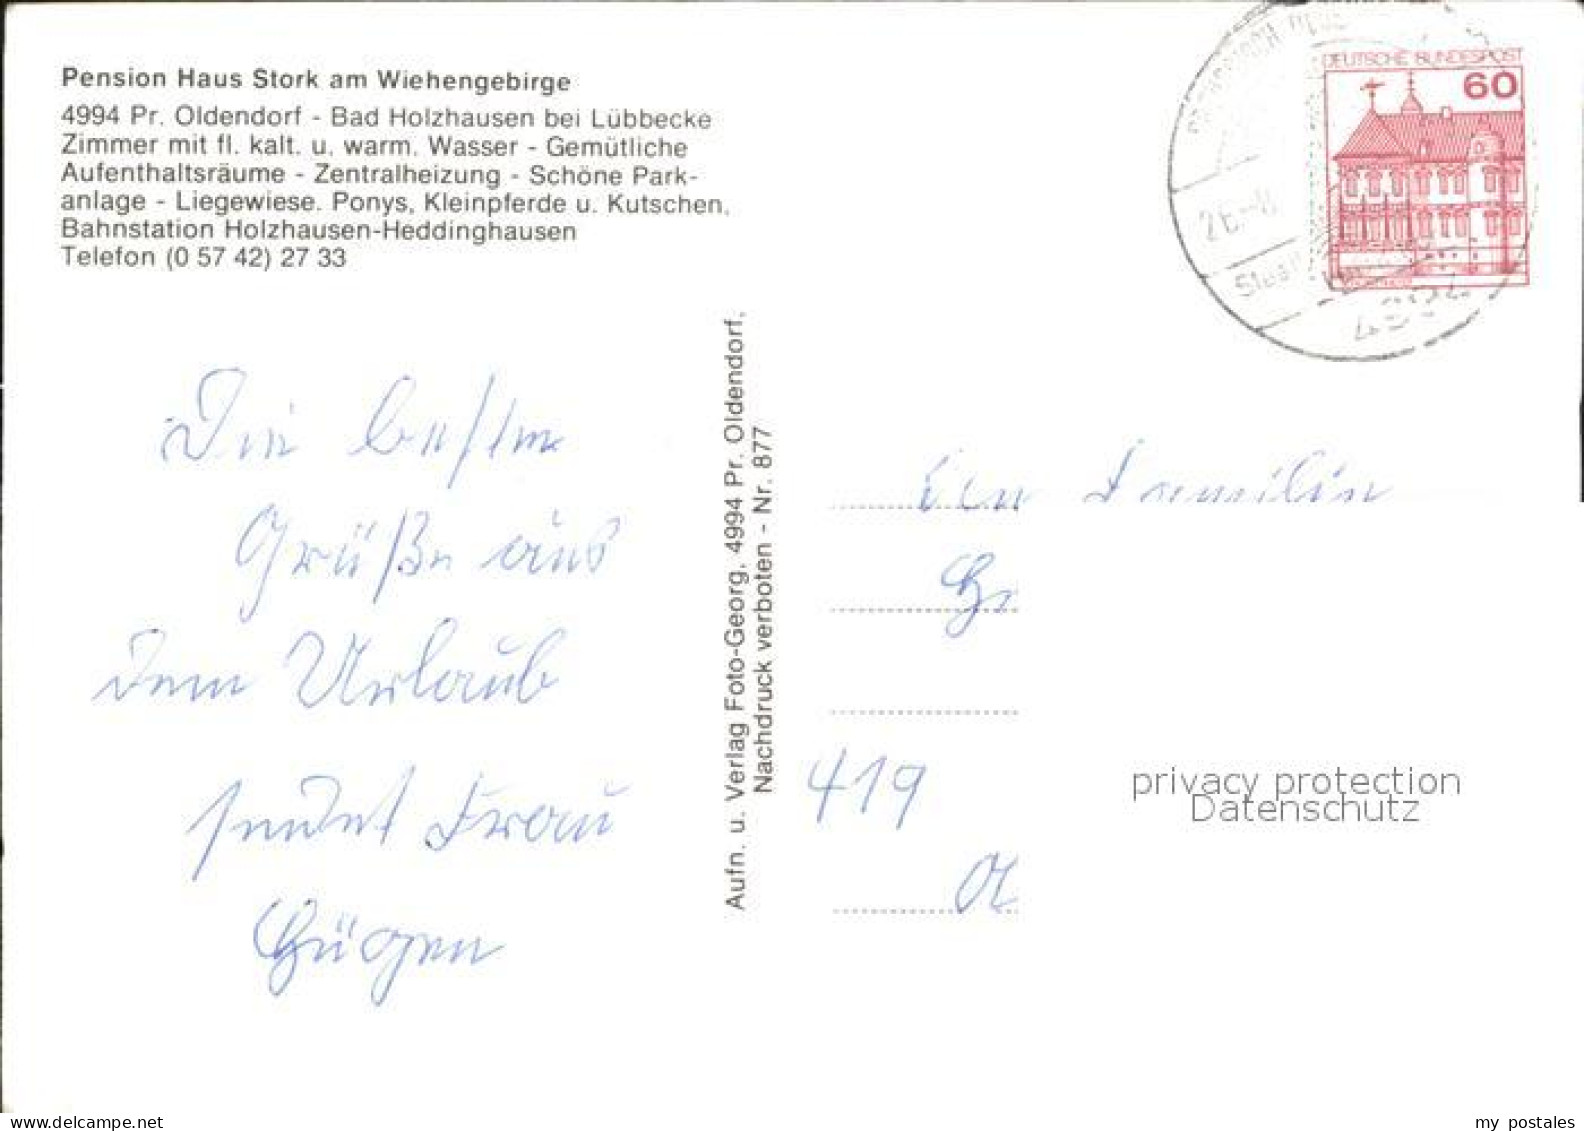 Pension Haus Stork am Wiehengebirge
4994 Pr. Oldendorf - Bad Holzhausen bei Lübbecke
Zimmer mit fl. kalt. u. warm. Wasser - Gemütliche
Aufenthaltsräume - Zentralheizung - Schöne Park-
anlage - Liegewiese. Ponys, Kleinpferde u. Kutschen.
Bahnstation Holzhausen-Heddinghausen
Telefon (0 57 42) 27 33
DEUTSCHE BUNDESPOST
60
26.
Die besten
Grüße aus
dem Urlaub
sendet Frau
Aufn. u. Verlag Foto-Georg, 4994 Pr. Oldendorf,
Nachdruck verboten - Nr. 877
Familie
419
privacy protection
Datenschutz
www.delcampe.net
my_postales